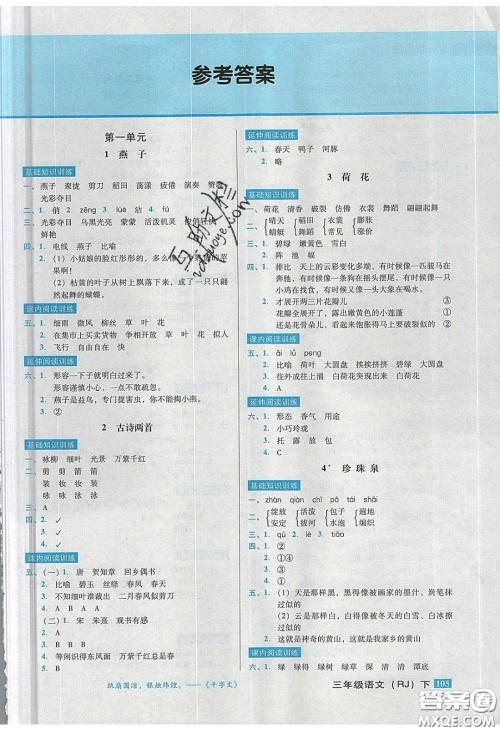 参考答案
第一单元
1 燕子
基础知识训练
一、燕子 聚拢 剪刀 稻田 荡漾 疲倦 演奏 赞赏
光彩夺目
二、1. 俏 2. zēng 3. lüè 沾 4. fú
三、光彩夺目 乌黑光亮 蒙蒙 活泼机灵
鲜艳
四、1. 电线 燕子 比喻
2. (1) 小姑娘的脸红彤彤的,多么
果啊!
(2) 枯黄的叶子从树上飘落下来,成了一只只
起舞的蝴蝶。
课内阅读训练
五、1. 细雨 微风 柳丝 草 叶 花
2. 在集市上买卖货物 争相开放 草 叶 花 拟人
3. 飞行 自由自在 快
延伸阅读训练
六、1. 形容一下子就明白过来了。
形容谨慎小心,一点不敢疏忽。
2. 燕子是益鸟,专门捉害虫,你不能掏小燕。
3. ②
2 古诗两首
基础知识训练
一、咏柳 细叶 光景 万紫千红
二、剪 剪 箭 箭
装 妆 妆 装
咏 咏 泳 泳
三、A
四、2. ✓
3. ✓
4. ✓
课内阅读训练
五、(一) 1. 唐 贺知章 回乡偶书
2. 比喻 碧玉 丝绦 春风 春天
3. 不知细叶谁裁出 二月春风似剪刀
4. A B A A
(二) 1. 宋 朱熹 观书有感
2. A
3. B B B
4. 等闲识得东风面 万紫千红总是春
5. B
延伸阅读训练
六、1. 春天 鸭子 河豚
2. 略
3 荷花
基础知识训练
一、荷花 清香 破裂 仿佛 衣裳 舞蹈 翩翩起舞
二、晴天 稻田 衣裳 膨胀
蜻蜓 舞蹈 常见 涨价
三、1. 碧绿 嫩黄色 雪白
2. 阵 池 幅
四、1. 排比 天上的云彩变化多端,有时候像一匹骏马在
奔驰,有时候像一条狗在摇头摆尾,有时候又像一只
小鸡在觅食
2. 才展开两三片花瓣儿 ③
全都展开了,露出嫩黄色的小莲蓬 ①
还是花骨朵儿,看起来饱胀得马上要破裂似的 ②
课内阅读训练
五、1. āi lù peng
2. 比喻 荷叶 大圆盘 挨挨挤挤 碧绿 大圆盘
3. 往外或往上涌 白荷花突现出来 白荷花
4. A
延伸阅读训练
六、1. 形态 香气 用途
2. 小巧玲珑
3. 托 露 放 包
4. C
4* 珍珠泉
基础知识训练
一、zhàn qiàn chī pō tái shài
二、绽放 活泼 包子 遍地
安定 拔河 水泡 编织
三、1. bó 2. lǜ 3. tiāo
四、1. ②
2. ①④
3. ①
4. ①
五、1. (1) 天是那样黑,黑得像被画家的墨汁、炭笔抹
过似的
(2) 云是那样白,白得像被初冬的白雪、白冰擦
过似的
2. 这就是神奇的黄山,这就是我家乡的黄山
课内阅读训练
六、1. 绿 绿得 绿树 绿草 深 清 清 潭底
纨扇圆洁,银烛炜煌。——《千字文》
三年级语文(RJ) 下 105